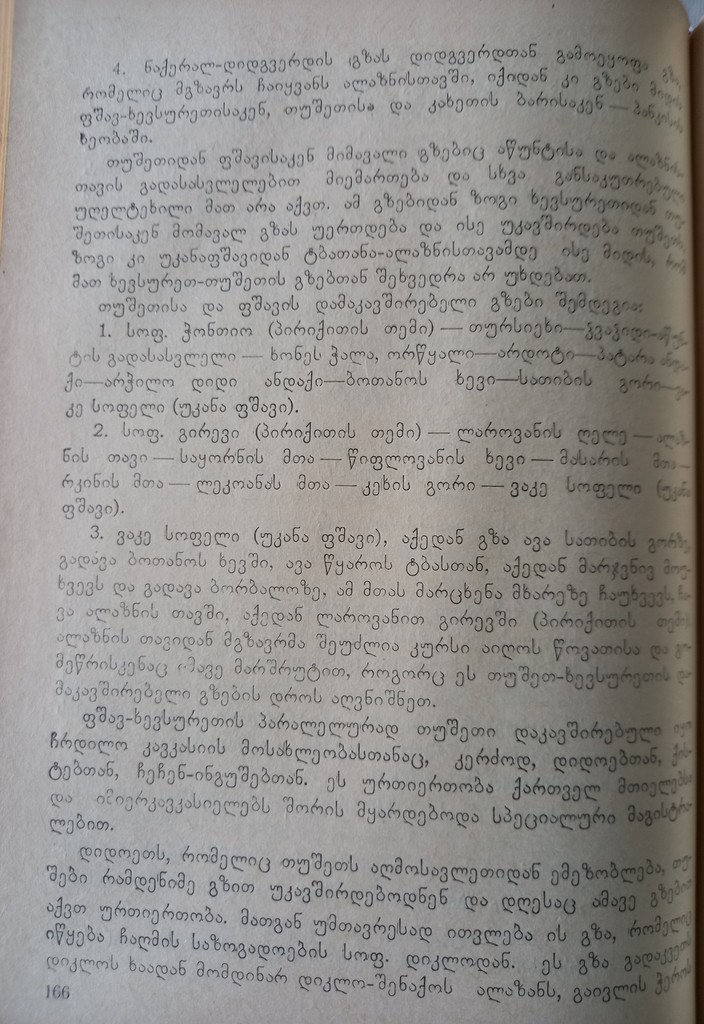 4. ნაქერალ-დიდგვერდის გზას დიდგვერდთან გამოეყოფა გზა,
რომელიც მგზავრს ჩაიყვანს ალაზნისთავში, იქიდან კი გზები მიდის
ფშავ-ხევსურეთისაკენ, თუშეთისა და კახეთის ბარისაკენ — პანკისის
ხეობაში.
თუშეთიდან ფშავისაკენ მიმავალი გზებიც აწუნტისა და ალაზნის
თავის გადასასვლელებით მიემართება და სხვა განსაკუთრებული
უღელტეხილი მათ არა აქვთ. ამ გზებიდან ზოგი ხევსურეთიდან თუ-
შეთისაკენ მომავალ გზას უერთდება და ისე უკავშირდება თუშეთს,
ზოგი კი უკანაფშავიდან ტბათანა-ალაზნისთავამდე ისე მიდის, რომ
მათ ხევსურეთ-თუშეთის გზებთან შეხვედრა არ უხდებათ.
თუშეთისა და ფშავის დამაკავშირებელი გზები შემდეგია:
1. სოფ. ჭონთიო (პირიქითის თემი) — თურსიეხი—კვაკიდი-აწუნ-
ტის გადასასვლელი — ხონეს ჭალა, ორწყალი—არდოტი—პატარა ანდა-
ქი—არჭილო დიდი ანდაქი—ბოთანოს ხევი—სათიბის გორი—
კე სოფელი (უკანა ფშავი).
2. სოფ. გირევი (პირიქითის თემი) — ლაროვანის ღელე — ალაზ-
ნის თავი — საყორნის მთა — წიფლოვანის ხევი — მასარის მთა —
რკინის მთა — ლეკოანას მთა — კეხის გორი — ვაკე სოფელი (უკანა
ფშავი).
3. ვაკე სოფელი (უკანა ფშავი), აქედან გზა ავა სათიბის გორზე,
გადავა ბოთანოს ხევში, ავა წყაროს ტბასთან, აქედან მარჯვნივ მოუ-
ხვევს და გადავა ბორბალოზე, ამ მთას მარცხენა მხარეზე ჩაუხვევს, ჩა-
ვა ალაზნის თავში, აქედან ლაროვანით გირევში (პირიქითის თემი).
ალაზნის თავიდან მგზავრმა შეუძლია კურსი აიღოს წოვათისა და გო-
მეწრისკენაც იმავე მარშრუტით, როგორც ეს თუშეთ-ხევსურეთის და-
მაკავშირებელი გზების დროს აღვნიშნეთ.
ფშავ-ხევსურეთის პარალელურად თუშეთი დაკავშირებული იყო
ჩრდილო კავკასიის მოსახლეობასთანაც, კერძოდ, დიდოებთან, ქის-
ტებთან, ჩეჩენ-ინგუშებთან. ეს ურთიერთობა ქართველ მთიელებსა
და იმიერკავკასიელებს შორის მყარდებოდა სპეციალური მაგისტრა-
ლებით.
დიდოეთს, რომელიც თუშეთს აღმოსავლეთიდან ემეზობლება, თუ-
შები რამდენიმე გზით უკავშირდებოდნენ და დღესაც ამავე გზებით
აქვთ ურთიერთობა. მათგან უმთავრესად ითვლება ის გზა, რომელიც
იწყება ჩაღმის საზოგადოების სოფ. დიკლოდან. ეს გზა გადაკვეთს
დიკლოს ხაადან მომდინარ დიკლო-შენაქოს ალაზანს, გაივლის ჭეროს
166